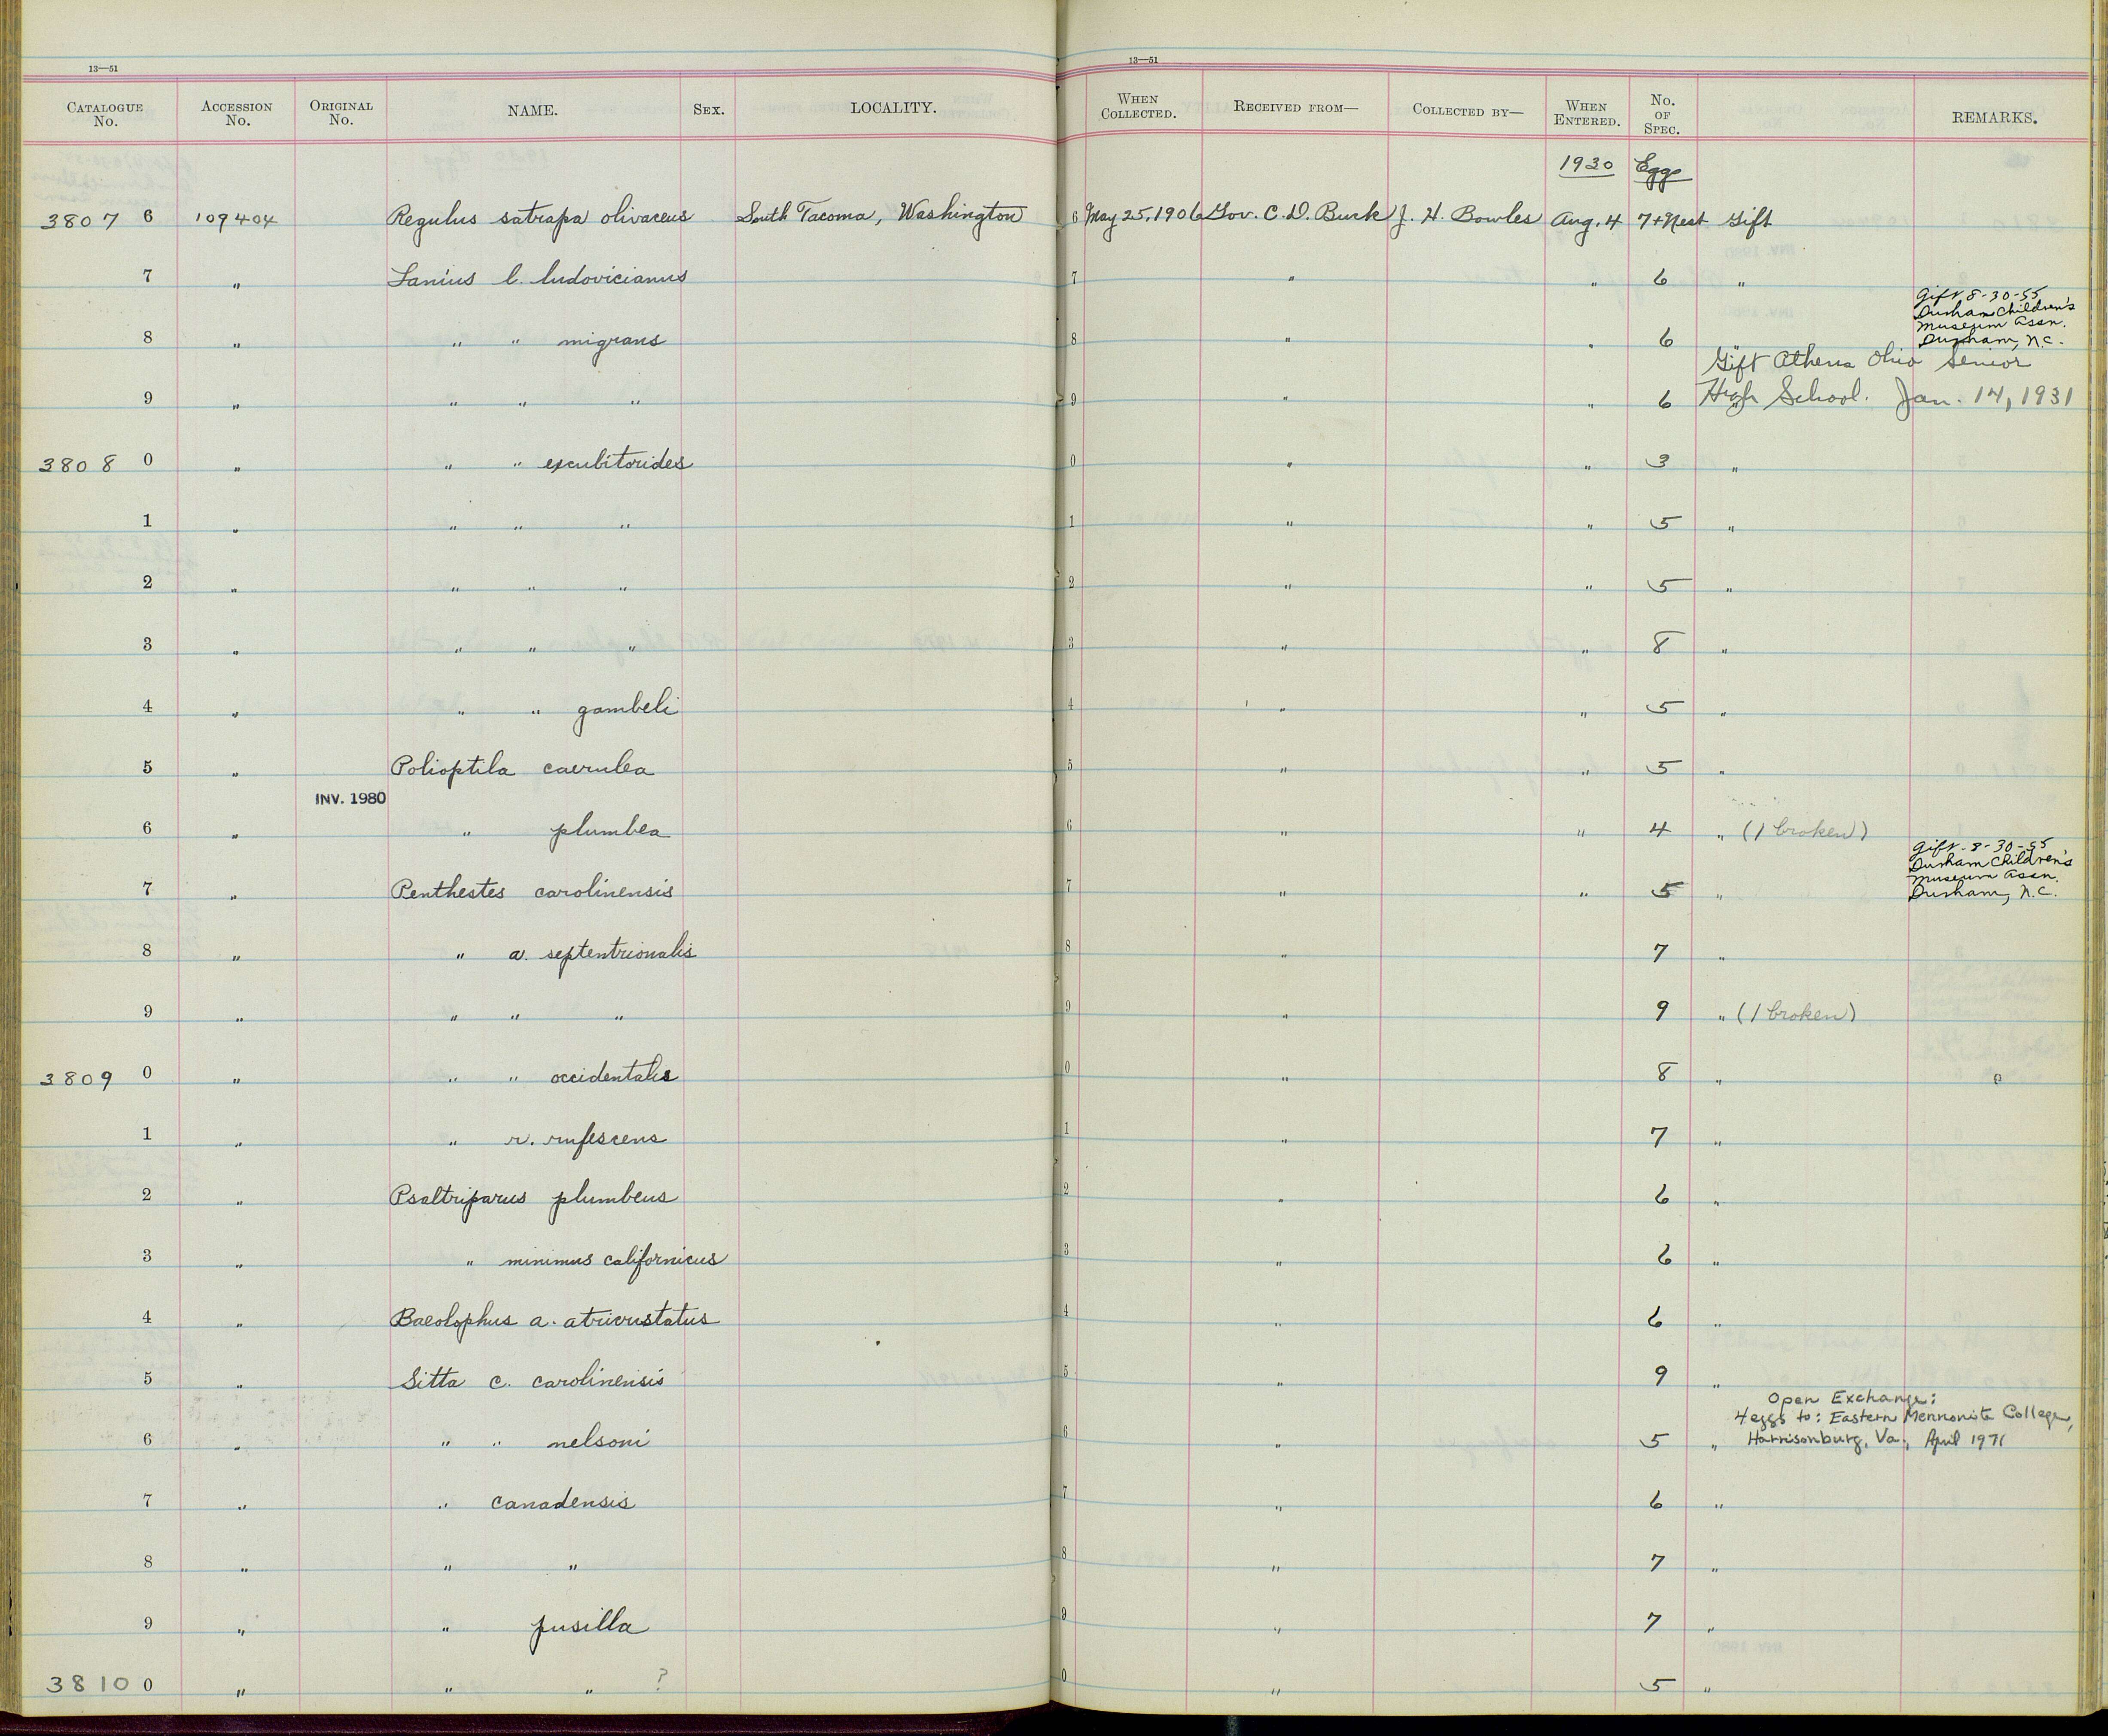 13—51 13—51
CATALOGUE No. ACCESSION No. ORIGINAL No. NAME. SEX. LOCALITY. WHEN COLLECTED. RECEIVED FROM— COLLECTED BY— WHEN ENTERED. No. OF SPEC. REMARKS.
1930 Eggs
3807 6 109404 Regulus satrapa olivaceus South Tacoma, Washington 6 May 25, 1906 Gov. C. D. Buck J. H. Bowles Aug. 4 7+Nest Gift
7 " Lanius l. ludovicianus 7 " " 6 "
Gift 8-30-55
Durham Children's
Museum Assn.
Durham, N.C.
8 " " " migrans 8 " " 6 "
Gift Athens Ohio Senior
High School. Jan. 14, 1931
9 " " " " 9 " " 6 "
3808 0 " " " excubitorides 0 " " 3 "
1 " " " " 1 " " 5 "
2 " " " " 2 " " 5 "
3 " " " " 3 " " 8 "
4 " " " gambeli 4 " " 5 "
5 " Polioptila caerulea 5 " " 5 "
INV. 1980
6 " " plumbea 6 " " 4 " (1 broken)
Gift - 8-30-55
Durham Children's
Museum Assn.
Durham, N.C.
7 " Penthestes carolinensis 7 " " 5 "
8 " " a. septentrionalis 8 " 7 "
9 " " " " 9 " 9 " (1 broken)
3809 0 " " " occidentalis 0 " 8 "
1 " " r. rufescens 1 " 7 "
2 " Psaltriparus plumbeus 2 " 6 "
3 " " minimus californicus 3 " 6 "
4 " Baeolophus a. atricristatus 4 " 6 "
5 " Sitta c. carolinensis 5 " 9 "
Open Exchange:
4 eggs to: Eastern Mennonite College,
Harrisonburg, Va., April 1971
6 " " " nelsoni 6 " 5 "
7 " " canadensis 7 " 6 "
8 " " " 8 " 7 "
9 " " pusilla 9 " 7 "
3810 0 " " " ? 0 " 5 "